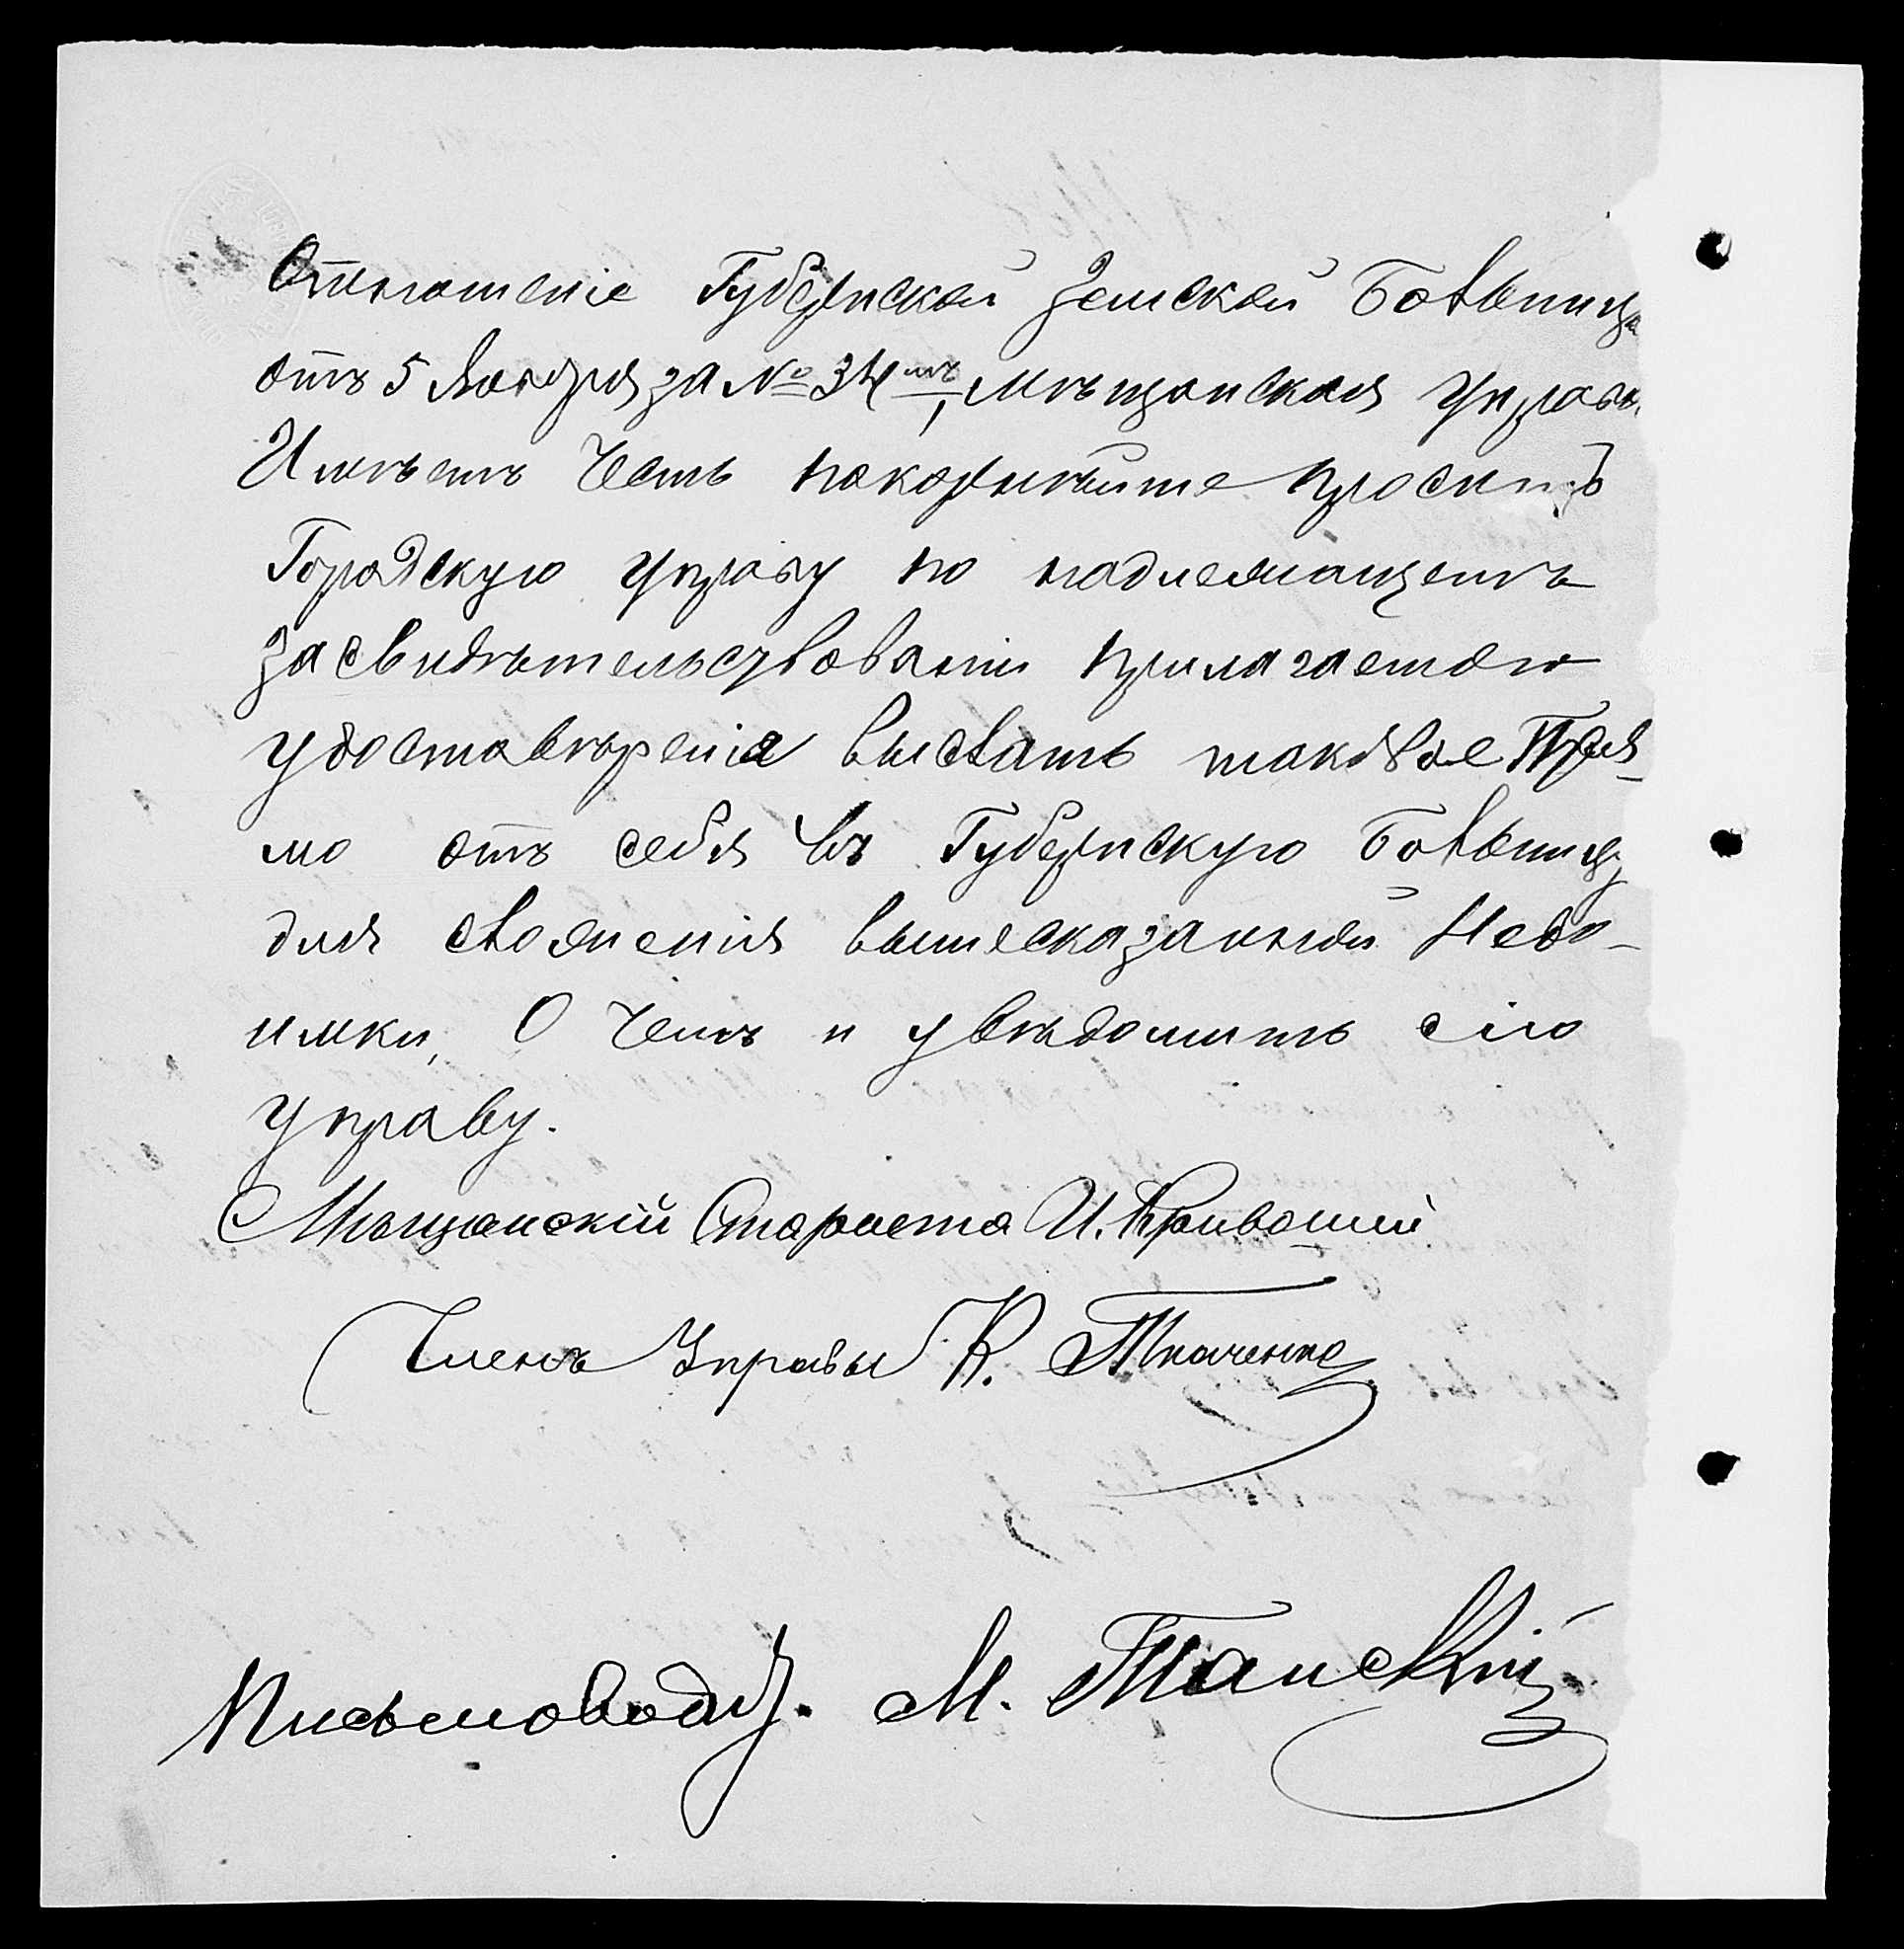 Отношеніе Губернской Земской Больницы
отъ 5 Января за № 34мъ, Мѣщанская Управа
Имѣетъ Честь покорнѣйше проситъ
Городскую Управу по надлежащемъ
засвидѣтельствованіи прилагаемаго
удостовѣренія выслать таковое Пря-
мо отъ себя въ Губернскую Больницу
для сложенія вышесказанной Недо-
имки, О Чемъ и увѣдомить сію
Управу.
Мѣщанскій Староста И. Кривошей
Членъ Управы К. Ткаченко
Письмоводи. М. Танскій